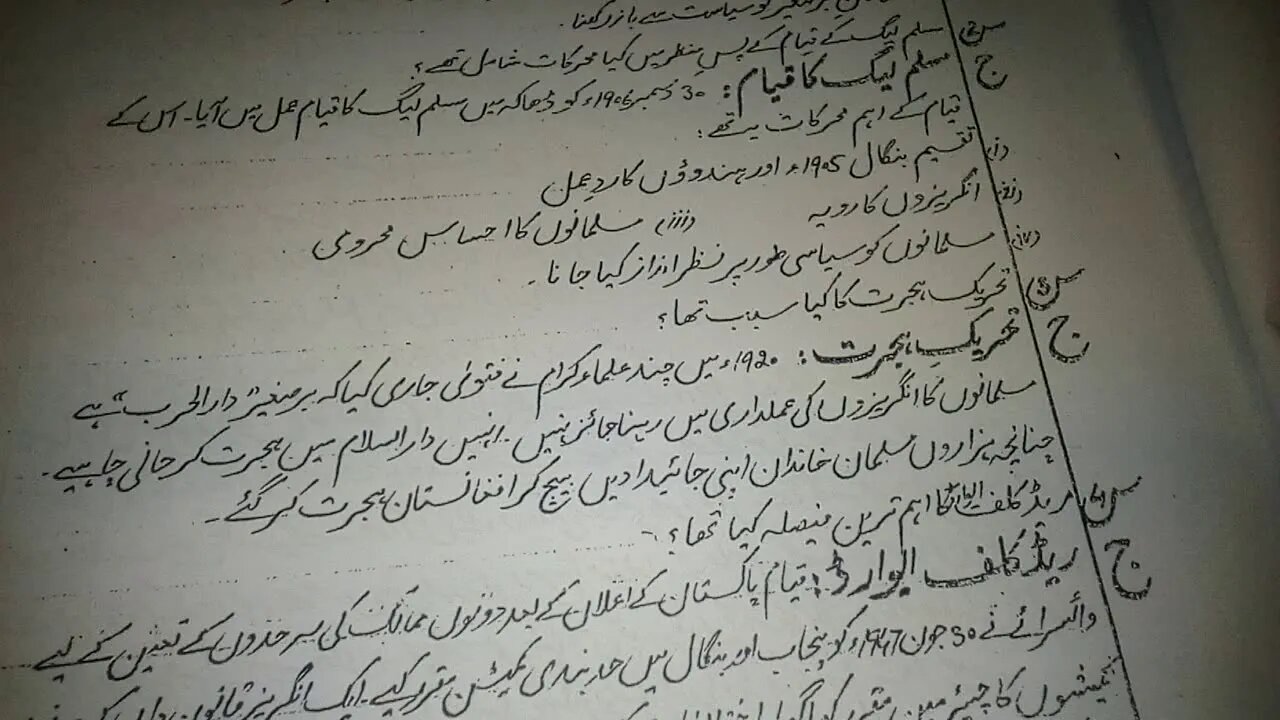 برصغیر کو سیاست سے باز رکھنا۔
س مسلم لیگ کے قیام کے پسِ منظر میں کیا محرکات شامل تھے؟
ج مسلم لیگ کا قیام: 30 دسمبر 1906ء کو ڈھاکہ میں مسلم لیگ کا قیام عمل میں آیا۔ اس کے
قیام کے اہم محرکات یہ تھے:
(i) تقسیم بنگال 1905ء اور ہندوؤں کا ردِعمل
(ii) انگریزوں کا رویہ (iii) مسلمانوں کا احساس محرومی
(iv) مسلمانوں کو سیاسی طور پر نظر انداز کیا جانا۔
س تحریکِ ہجرت کا کیا سبب تھا؟
ج تحریکِ ہجرت: 1920ء میں چند علماء کرام نے فتویٰ جاری کیا کہ برصغیر "دارالحرب" ہے
مسلمانوں کا انگریزوں کی عملداری میں رہنا جائز نہیں۔ انہیں دارالسلام میں ہجرت کر جانی چاہیے۔
چنانچہ ہزاروں مسلمان خاندان اپنی جائیدادیں بیچ کر افغانستان ہجرت کر گئے۔
س ریڈ کلف ایوارڈ کا اہم ترین فیصلہ کیا تھا؟
ج ریڈ کلف ایوارڈ: قیام پاکستان کے اعلان کے بعد دونوں ممالک کی سرحدوں کے تعین کے لیے
وائسرائے نے 30 جون 1947ء کو پنجاب اور بنگال میں حد بندی کمیشن مقرر کیے۔ ایک انگریز قانون دان
کمیشوں کا چیئرمین مقرر کیا گیا۔